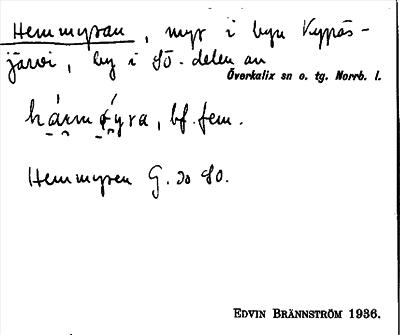 Hemmyran, myr i byn Vyppäs-
järvi, by i SO. delen av
Överkalix sn o. tg. Norrb. l.
bf. fem.
Hemmyren G. 20 SO.
EDVIN BRÄNNSTRÖM 1936.